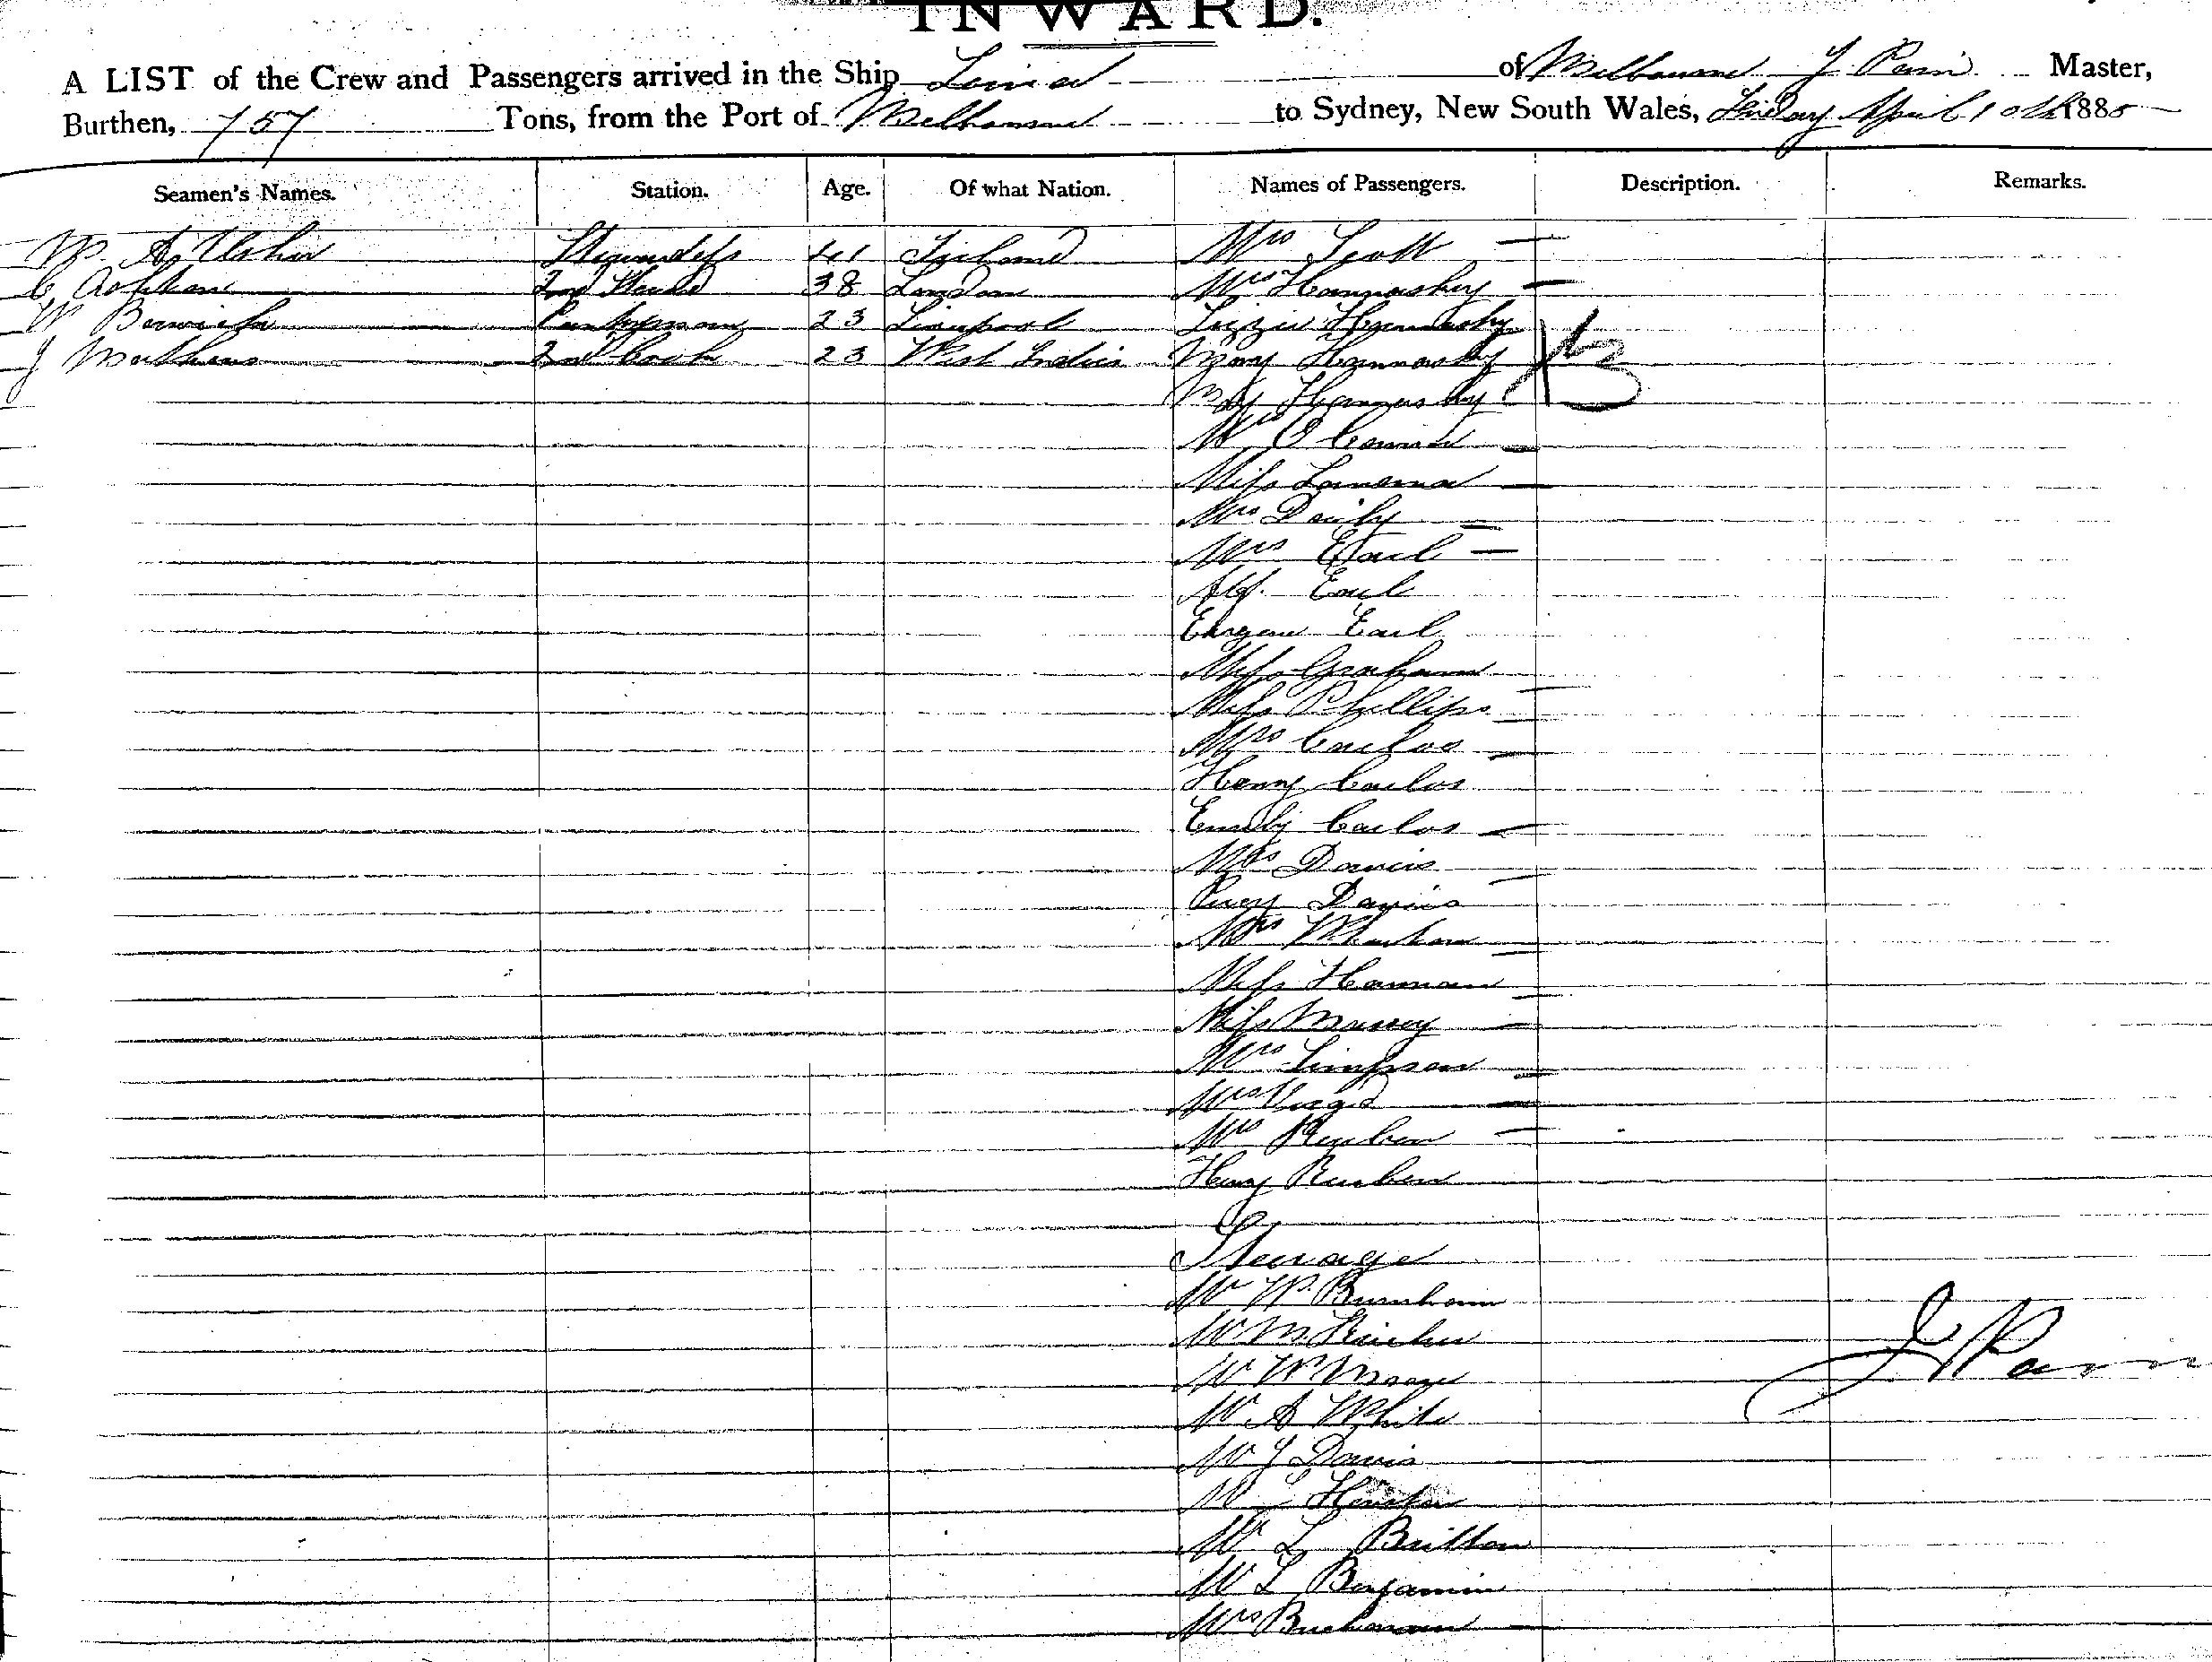 INWARD.
A LIST of the Crew and Passengers arrived in the Ship of Melbourne J. Pain Master,
Burthen, 757 Tons, from the Port of Melbourne to Sydney, New South Wales, Friday April 10th 1885
Seamen's Names. Station. Age. Of what Nation. Names of Passengers. Description. Remarks.
Stewardess 41 Ireland Mrs Scott
2nd Steward 38 London Mrs Hannashy
W Berwick Pantryman 23 Liverpool Lizzie Hannashy
J Mathews 2nd Cook 23 West Indies Mary Hannashy
May Hannashy
O Connor
Miss
Mrs Daily
Mrs Earl
Alf. Earl
Earl
Miss Graham
Miss Phillips
Mrs Carlos
Henry Carlos
Emily Carlos
Mrs Davis
Percy Davis
Mrs
Miss Hannan
Miss
Mrs Simpson
Mrs
Mrs Reuben
Henry Reuben
Steerage
Mr W. Burnham
Mr M.
Mr W Moore
Mr A White
Mr J Davis
Mr
Mr L Britton
Mr L Benjamin
Mrs Buchanan
J Pain